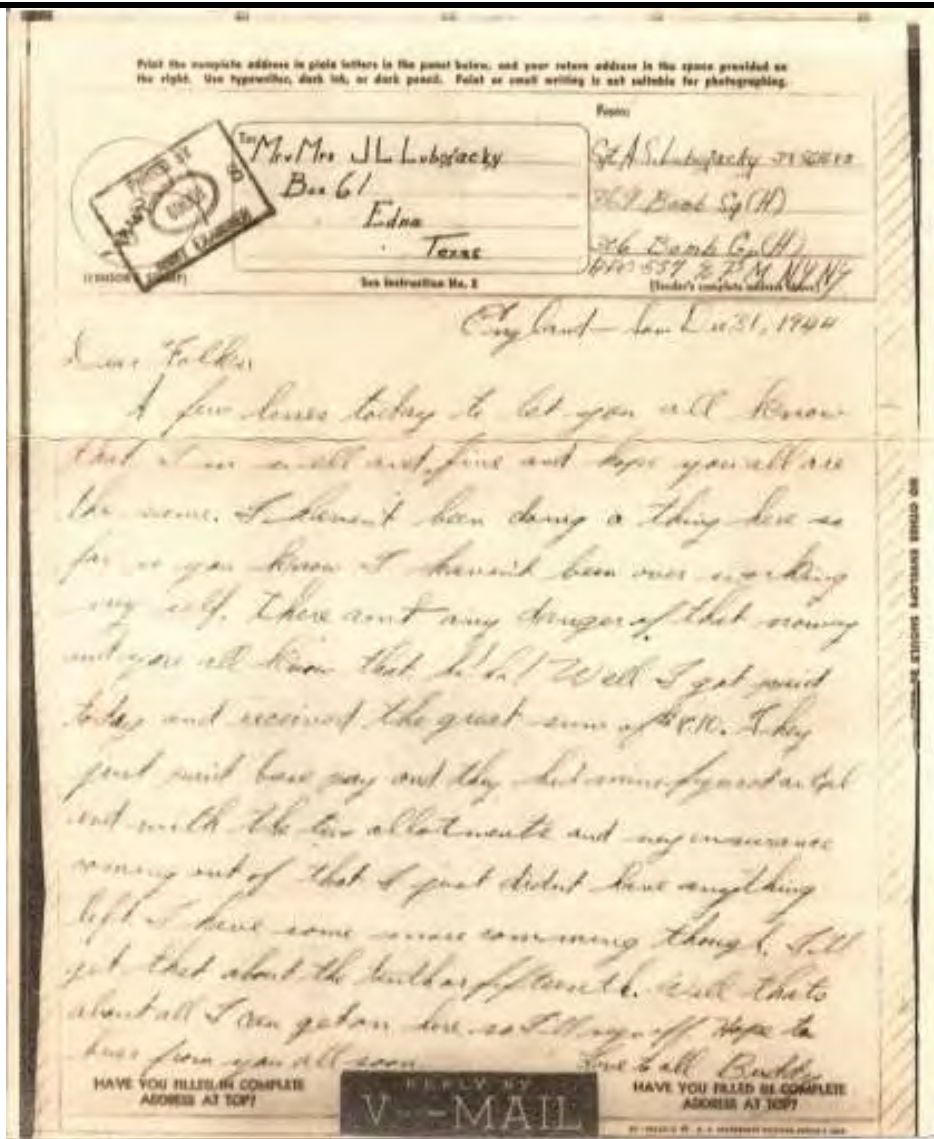 Print the complete address in plain letters in the panel below, and your return address in the space provided on
the right. Use typewriter, dark ink, or dark pencil. Faint or small writing is not suitable for photographing.
To:
Mr & Mrs J L Lubojacky
Box 61
Edna
Texas
PASSED BY
ARMY EXAMINER
(CENSOR'S STAMP)
See Instruction No. 2
From:
Sgt A S. Lubojacky
369 Bomb Sq (H)
306 Bomb Gp (H)
APO 557 % P M. NY NY
(Sender's complete address above)
England Dec 31, 1944
Dear Folks
A few lines today to let you all know
that I'm well and fine and hope you all are
the same. I haven't been doing a thing here so
far so you know I haven't been over working
my self. There aint any danger of that
and you all know that ha! ha! Well I got paid
today and received the great sum of $8.10. They
just paid base pay and they had mine figured as Cpl
and with the two allotments and my insurance
coming out of that I just didnt have anything
left. I have some more comming though. I'll
get that about the tenth or fifteenth. Well thats
about all I can get on here so I'll sign off. Hope to
hear from you all soon
Love to all Buddy
HAVE YOU FILLED IN COMPLETE
ADDRESS AT TOP?
REPLY BY
V---MAIL
HAVE YOU FILLED IN COMPLETE
ADDRESS AT TOP?
NO OTHER ENVELOPE SHOULD